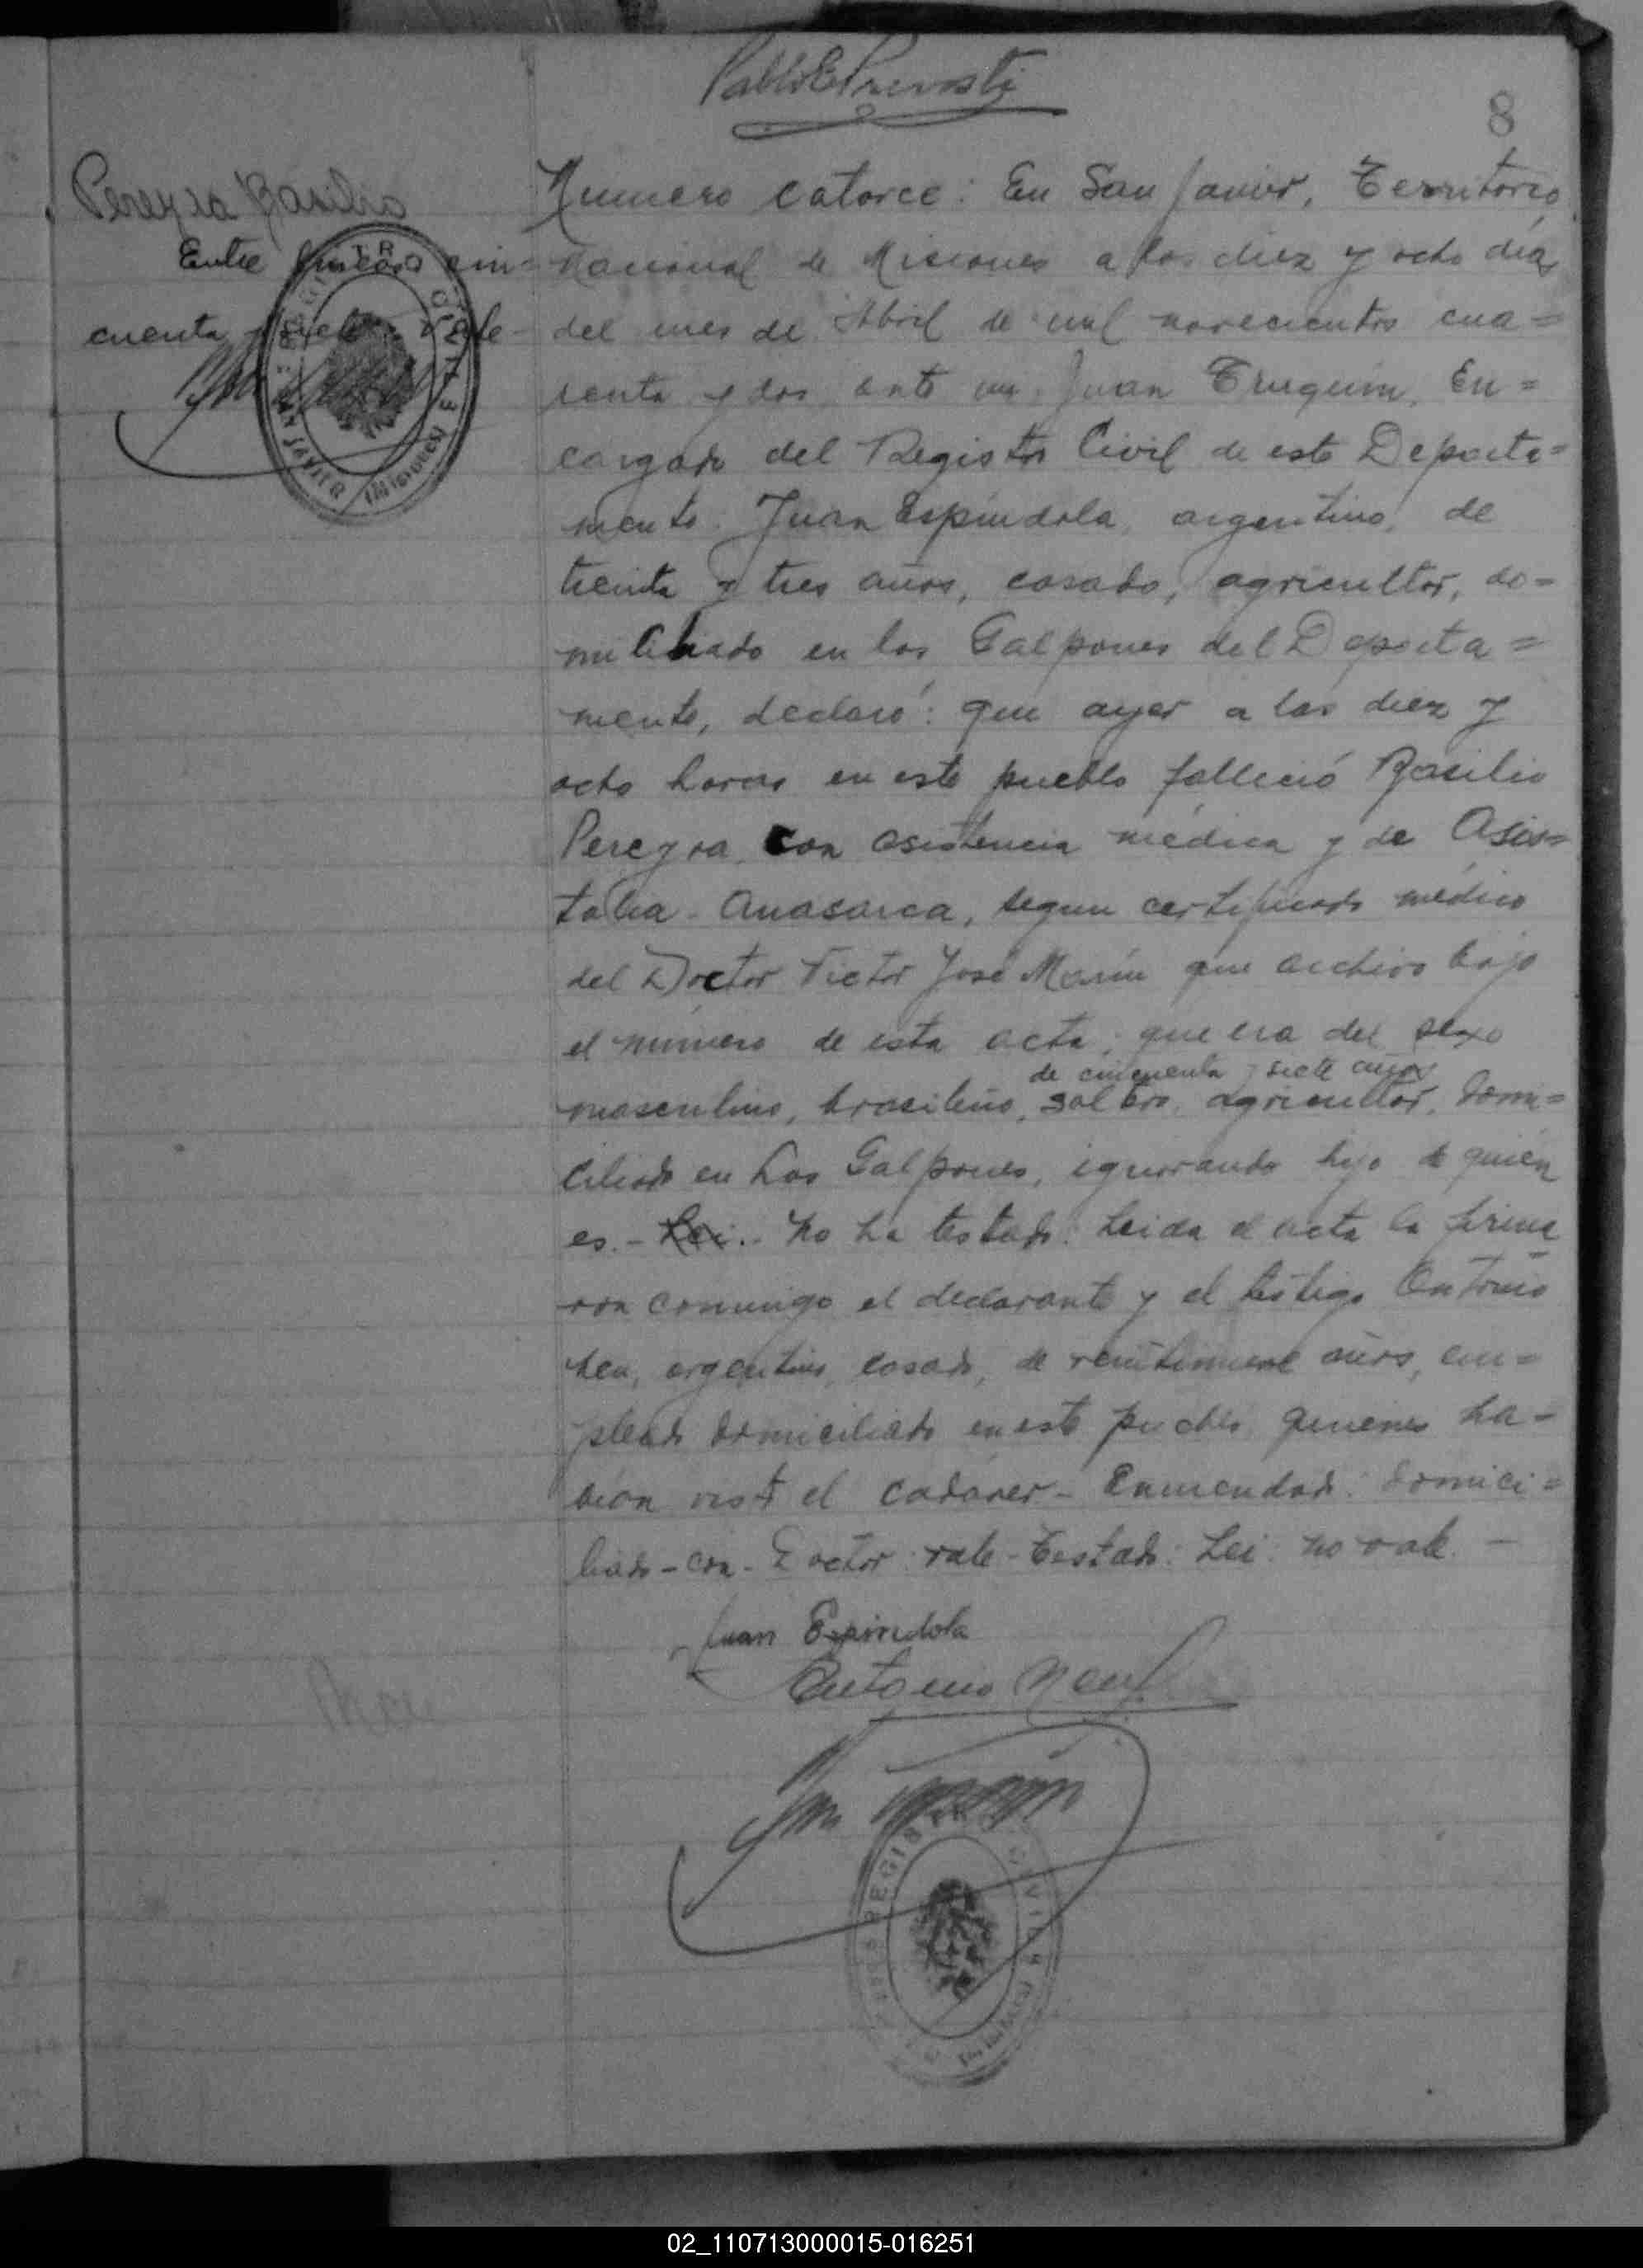 Pablo E Prevosti
8
Pereyra Basilio
Entre lineas cin=
cuenta y siete vale
REGISTRO CIVIL
SAN JAVIER (MISIONES)
Numero catorce: En San Javier, Territorio
Nacional de Misiones a los diez y ocho días
del mes de Abril de mil novecientos cua=
renta y dos, ante mi Juan Truquin, En=
cargado del Registro Civil de este Departa=
mento. Juan Espindola, argentino, de
treinta y tres años, casado, agricultor, do=
miciliado en los Galpones del Departa=
mento, declaró: que ayer a las diez y
ocho horas en este pueblo falleció Basilio
Pereyra con asistencia médica y de Asis=
talia - Anasarca, segun certificado médico
del Doctor Victor José Marin que archivo bajo
el número de esta acta; que era del sexo
de cincuenta y siete años
masculino, brasileño, soltero, agricultor, domi=
ciliado en Los Galpones, ignorando hijo de quién
es. - Lei. - No ha testado. Leida el acta la firma
ron conmigo el declarante y el testigo Antonio
Neu, argentino, casado, de veintinueve años, em=
pleado domiciliado en este pueblo, quienes ha=
bian visto el cadaver - Enmendado: domici=
liado - con - Doctor: vale - Testado: Lei: no vale. -
Juan Espindola
Antonio Neu
REGISTRO CIVIL
02_110713000015-016251